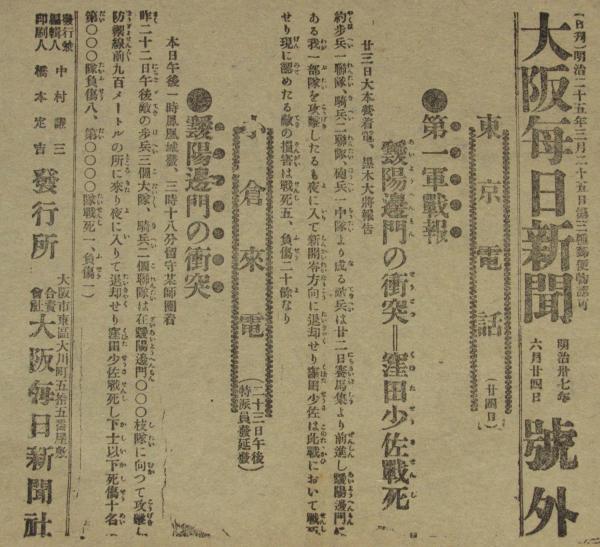 (日刊)明治二十五年三月二十五日第三種郵便物認可
大阪毎日新聞 明治卅七年六月廿四日 號外
東京電話(廿四日)
●第一軍戰報
靉陽邊門の衝突―窪田少佐戰死
廿三日大本營着電、黒木大將報告
約歩兵一聯隊、騎兵二聯隊、砲兵一中隊より成る敵兵は廿二日賽馬集より前進し靉陽邊門に
ある我一部隊を攻撃したるも夜に入て新開岺方向に退却せり窪田少佐は此戰において戰死
せり現に認めたる敵の損害は戰死五、負傷二十餘なり
小倉來電(二十三日午後特派員發延發)
●靉陽邊門の衝突
本日午後一時鳳凰城發、三時十八分留守某師團着
昨二十二日午後敵の歩兵三個大隊、騎兵二個聯隊は在靉陽邊門〇〇〇枝隊に向つて攻撃し
防禦線前九百メートルの所に來り夜に入りて退却せり窪田少佐戰死し下士以下死傷十名(
第〇〇〇隊負傷八、第〇〇〇〇隊戰死一、負傷一)
發行兼編輯人 中村謙三
印刷人 橋本定吉
發行所 大阪市東區大川町五拾五番屋敷 合資會社 大阪毎日新聞社